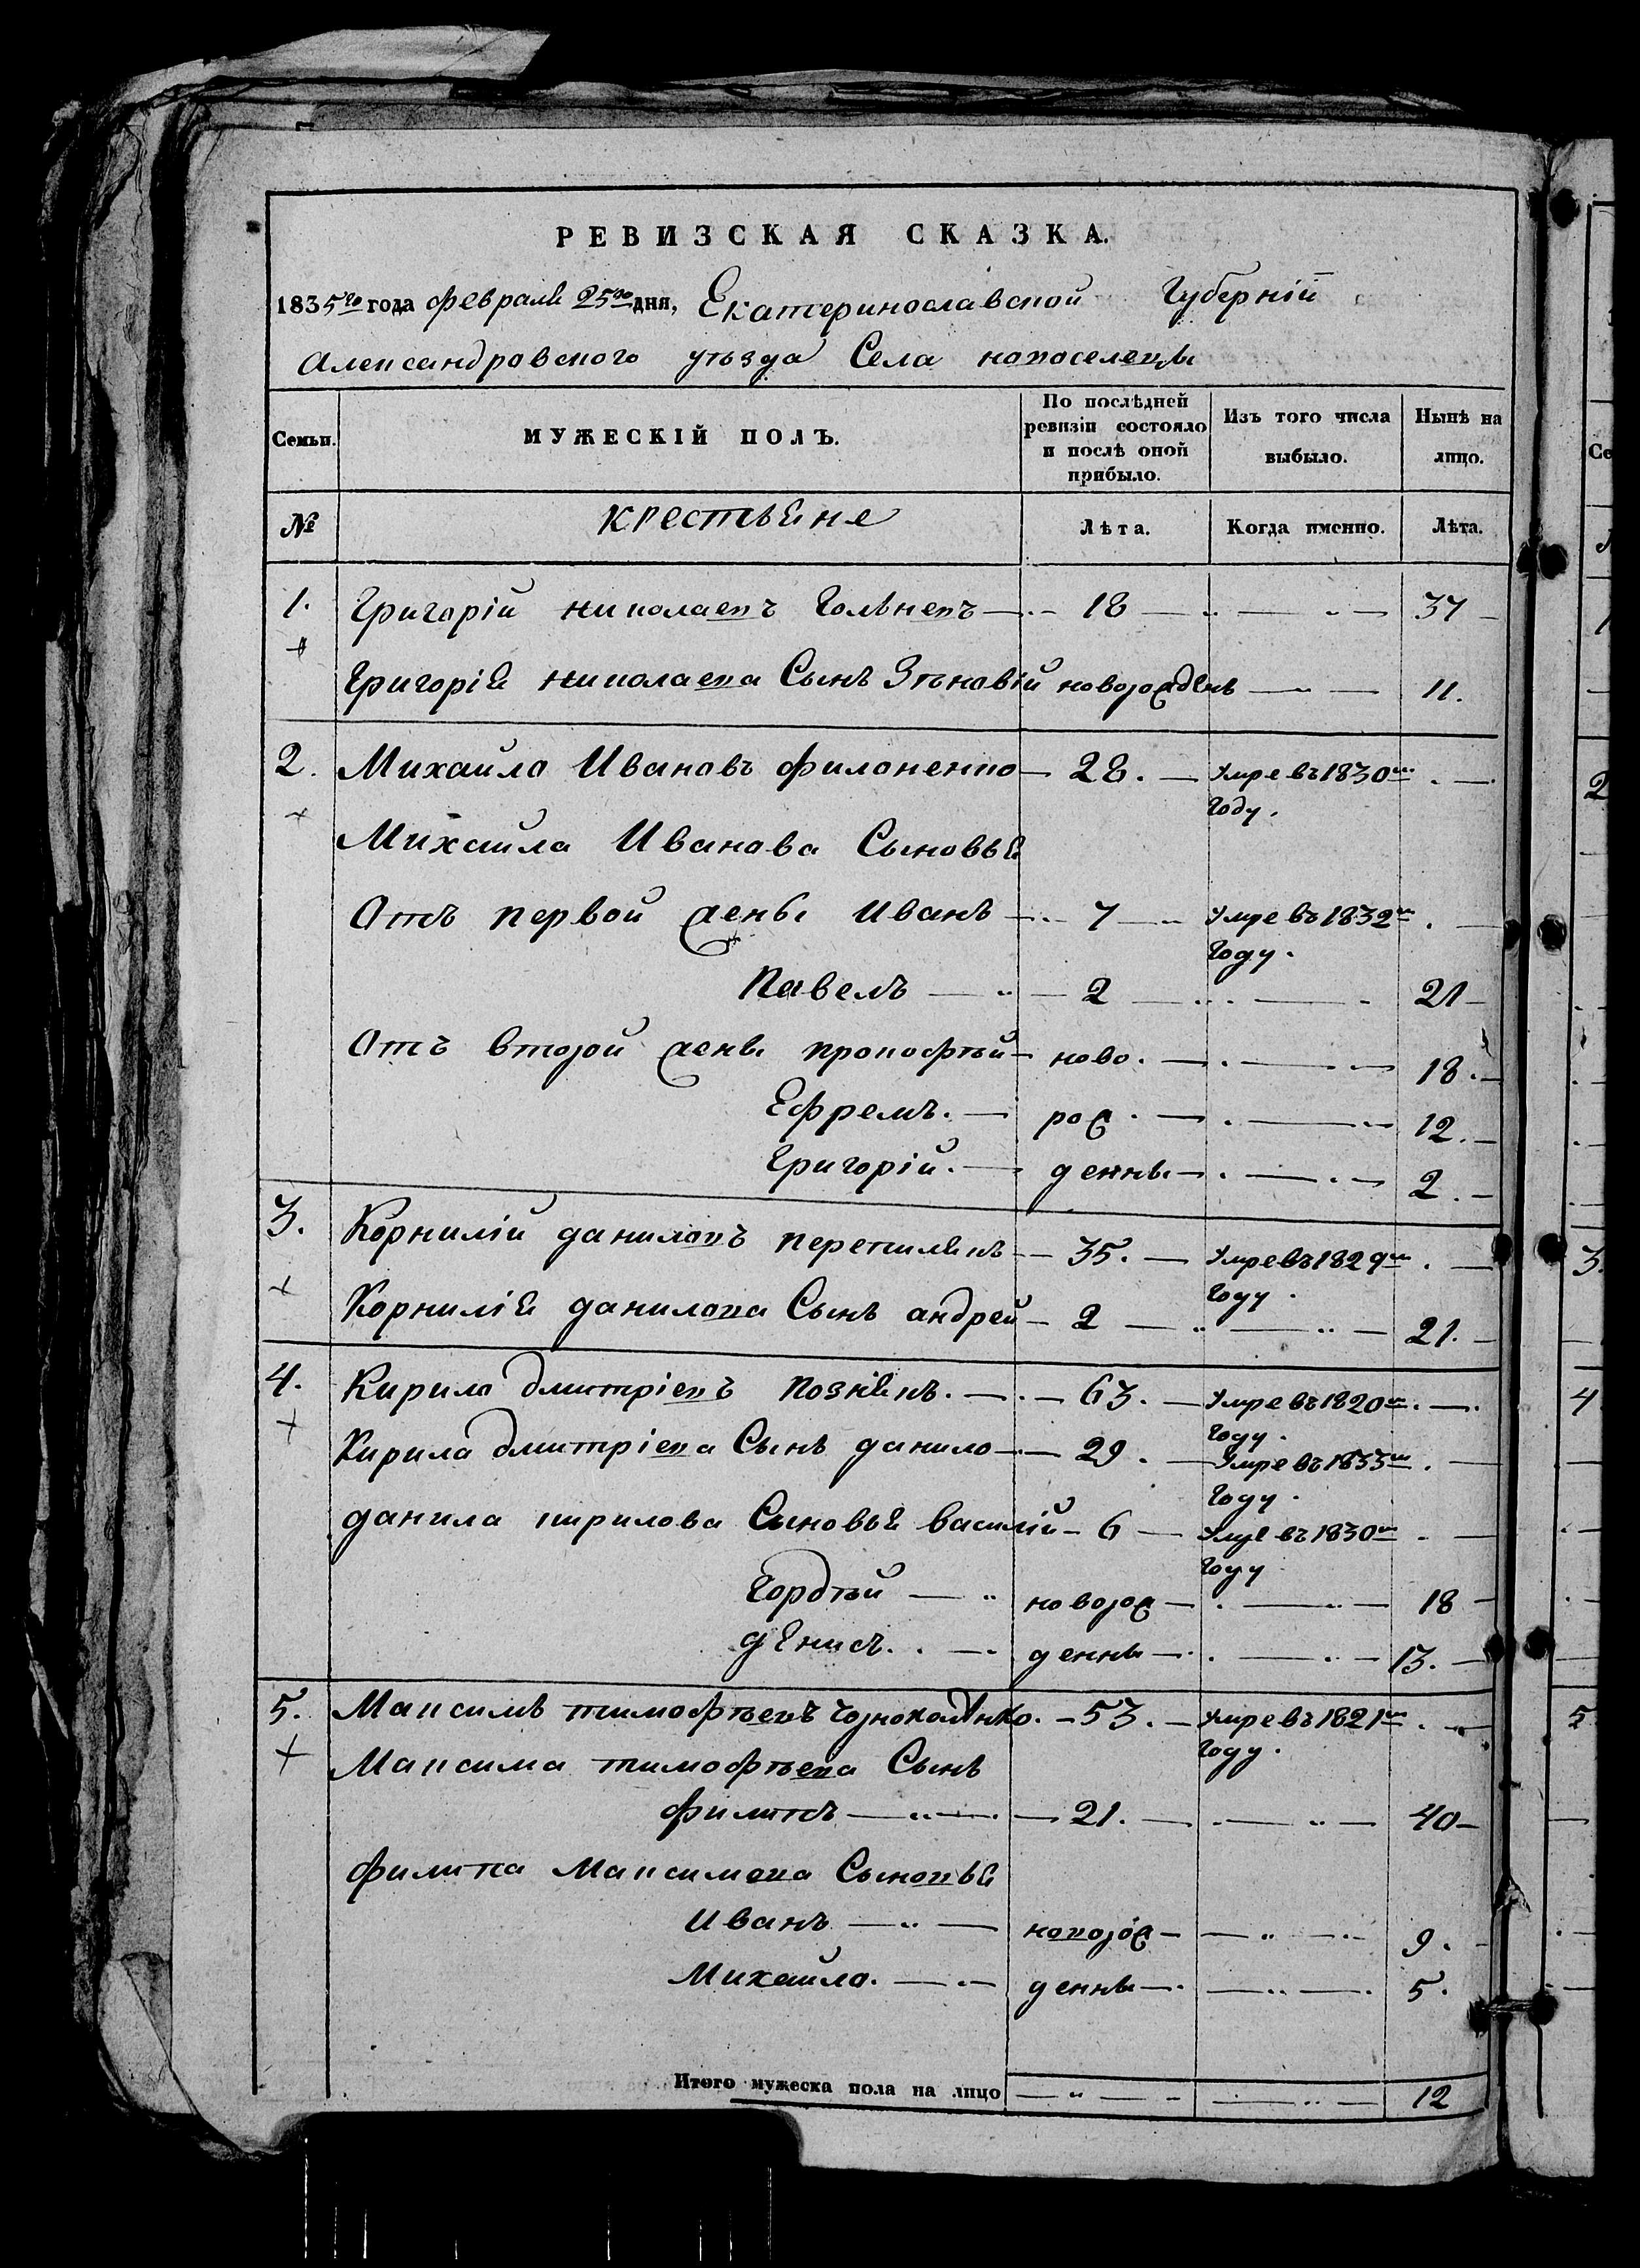 РЕВИЗСКАЯ СКАЗКА.
1835го года февраля 25го дня, Екатеринославской Губерніи
Александровского уѣзда Села новоселецы
Семьи. МУЖЕСКІЙ ПОЛЪ. По послѣдней ревизіи состояло и послѣ оной прибыло. Изъ того числа выбыло. Нынѣ на лицо.
№ крестьяне Лѣта. Когда именно. Лѣта.
1. Григорій николаевъ 18 37
Григорія николаева Сынъ Зѣновій новорожденъ 11.
2. Михайло Ивановъ филоненко 28. Умре въ 1830м
Году.
Михайла Иванова Сыновья
Отъ первой жены Иванъ 7 Умре въ 1832м
Году.
Павелъ 2 21
Отъ второй жены прокофѣй ново. 18.
Ефремъ. рож 12.
Григорій. денны 2.
3. Корнилій даниловъ 35. Умре въ 1829м
Году.
Корнилія данилова Сынъ андрей 2 21.
4. Кирило дмитріевъ познякъ. 63. Умре въ 1820м
Году.
Кирила дмитріева Сынъ данило 29. Умре въ 1833м
Году.
данила кирилова Сыновья василій 6 Умре въ 1830м
Году
Гордѣй новорож 18
денисъ. денны 13.
5. Максимъ тимофѣевъ 53. Умре въ 1821м
Году.
Максима тимофѣева Сынъ
филипъ 21. 40
филипа Максимова Сыновья
Иванъ новорож 9.
Михайло. денны 5.
Итого мужеска пола на лицо 12